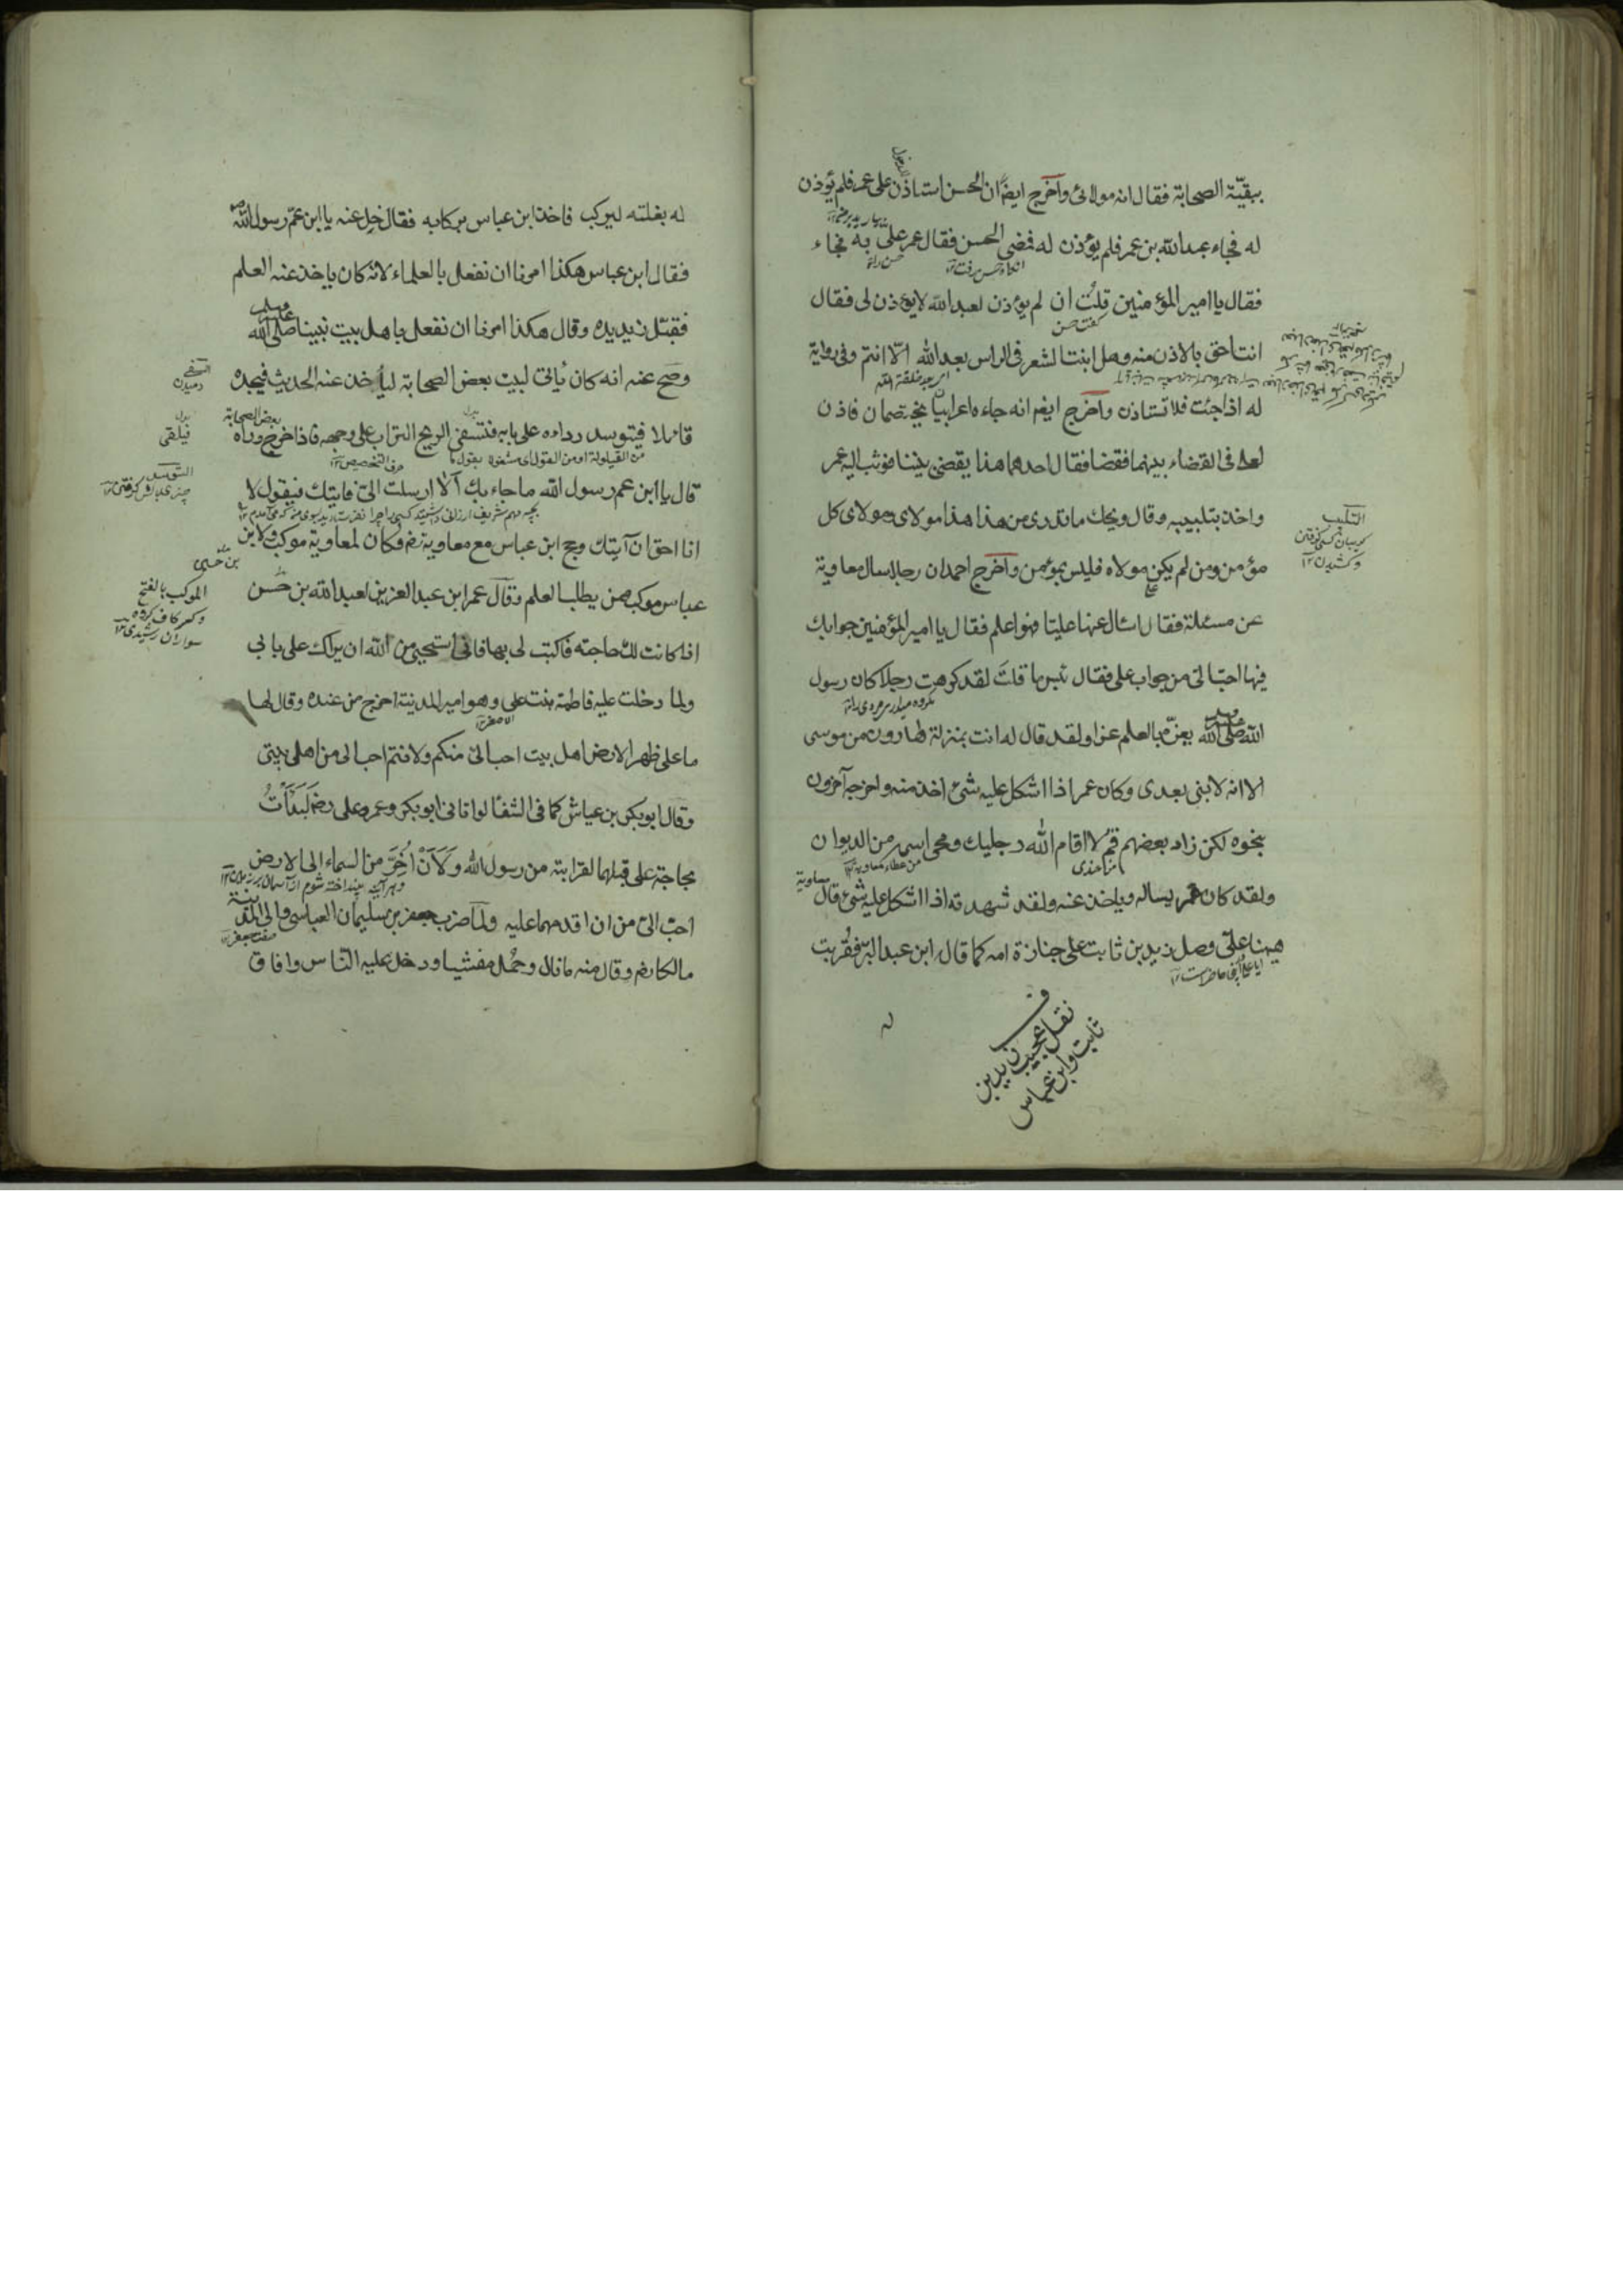 ببقيّة الصحابة فقال انه مولائ وآخرج ايضًا ان الحسن استاذن على عمر فلم يؤذن
له فجاء عبدالله بن عمر فلم يؤذن له فمضى الحسن فقال عمر على به فجاء
فقال يا امير المؤمنين قلتُ ان لم يؤذن لعبد الله لا يؤذن لى فقال
انت احق بالاذن منه وهل انبت الشعر فى الراس بعد الله الّا انتم وفى رواية
له اذا جئت فلا تستاذن وآخرج ايضا انه جاءه اعرابيان يختصمان فاذن
لعلى فى القضاء بينهما فقضا فقال احدهما هذا يقضى بيننا فوثب اليه عمر
واخذ بتلبيبه وقال ويحك ما تدرى من هذا هذا مولاى ومولاى كل
مؤمن ومن لم يكن مولاه فليس بمؤمن وآخرج احمد ان رجلا سال معاوية
عن مسئلة فقال اسئال عنها عليّا فهو اعلم فقال يا امير المؤمنين جوابك
فيها احبّ الىّ من جواب على فقال بئس ما قلتَ لقد كرهت رجلا كان رسول
الله صلى الله عليه وسلم يعزّه بالعلم عزا ولقد قال له انت بمنزلة هارون من موسى
الا انه لا نبى بعدى وكان عمر اذا اشكل عليه شئ اخذ منه واخرجه آخرون
بنحوه لكن زاد بعضهم قم لا اقام الله رجليك ومحى اسمه من الديوان
ولقد كان عمر يساله وياخذ عنه ولقد شهدته اذا اشكل عليه شئ قال
ههنا علىّ وصلى زيد بن ثابت على جنازة امه كما قال ابن عبد البرّ فقُرّبت
التلبيب
گريبان كسى گرفتن
و كشيدن ١٢
ف
نقل عجيب زيد بن
ثابت وابن عباس
له بغلته ليركب فاخذ ابن عباس بركابه فقال خلِ عنه يا ابن عمّ رسول الله
فقال ابن عباس هكذا امرنا ان نفعل بالعلماء لانه كان ياخذ عنه العلم
فقبّل زيد يده وقال هكذا امرنا ان نفعل باهل بيت نبينا صلى الله عليه وسلم
وصَح عنه انه كان يُاتى لبيت بعض الصحابة ليأخذ عنه الحديث فيجده
قائلا فيتوسد رداءه على بابه فتسفى الريح التراب على وجهه فاذا خرج وراه
قال يا ابن عم رسول الله ما جاء بك آلا ارسلت الىّ فاتيتك فيقول لا
انا احق ان آتيتك وحج ابن عباس مع معاوية رض وكان لمعاوية موكب ولابن
عباس موكب ممن يطلب العلم وقال عمر ابن عبد العزيز لعبد الله بن حَسن
اذا كانت لك حاجته فاكتب لى بها فانى استحيى من الله ان يراك على بابى
ولما دخلت عليه فاطمة بنت على وهو امير المدينة اخرج من عنده وقال لها
ما على ظهر الارض اهل بيت احب الىّ منكم ولانتم احب الى من اهل بيتى
وقال ابو بكر بن عياش كما فى الشفا لو اتانى ابو بكر وعمر وعلى رض لَبَدَأتُ
بحاجة على قبلهما لقرابته من رسول الله وَلَاَنْ اَخُرَّ من السماء الى الارض
احبّ الىّ من ان اقدمهما عليه ولمّا ضرب جعفر بن سليمان العباسى والى المدينة
مالكا رض وقال منه ما نال وحُمل مغشيا ودخل عليه الناس وافاق
بعض الصحابة
الموكب بالفتح
وكسر كاف گروه
سواران رشيدى ١٢